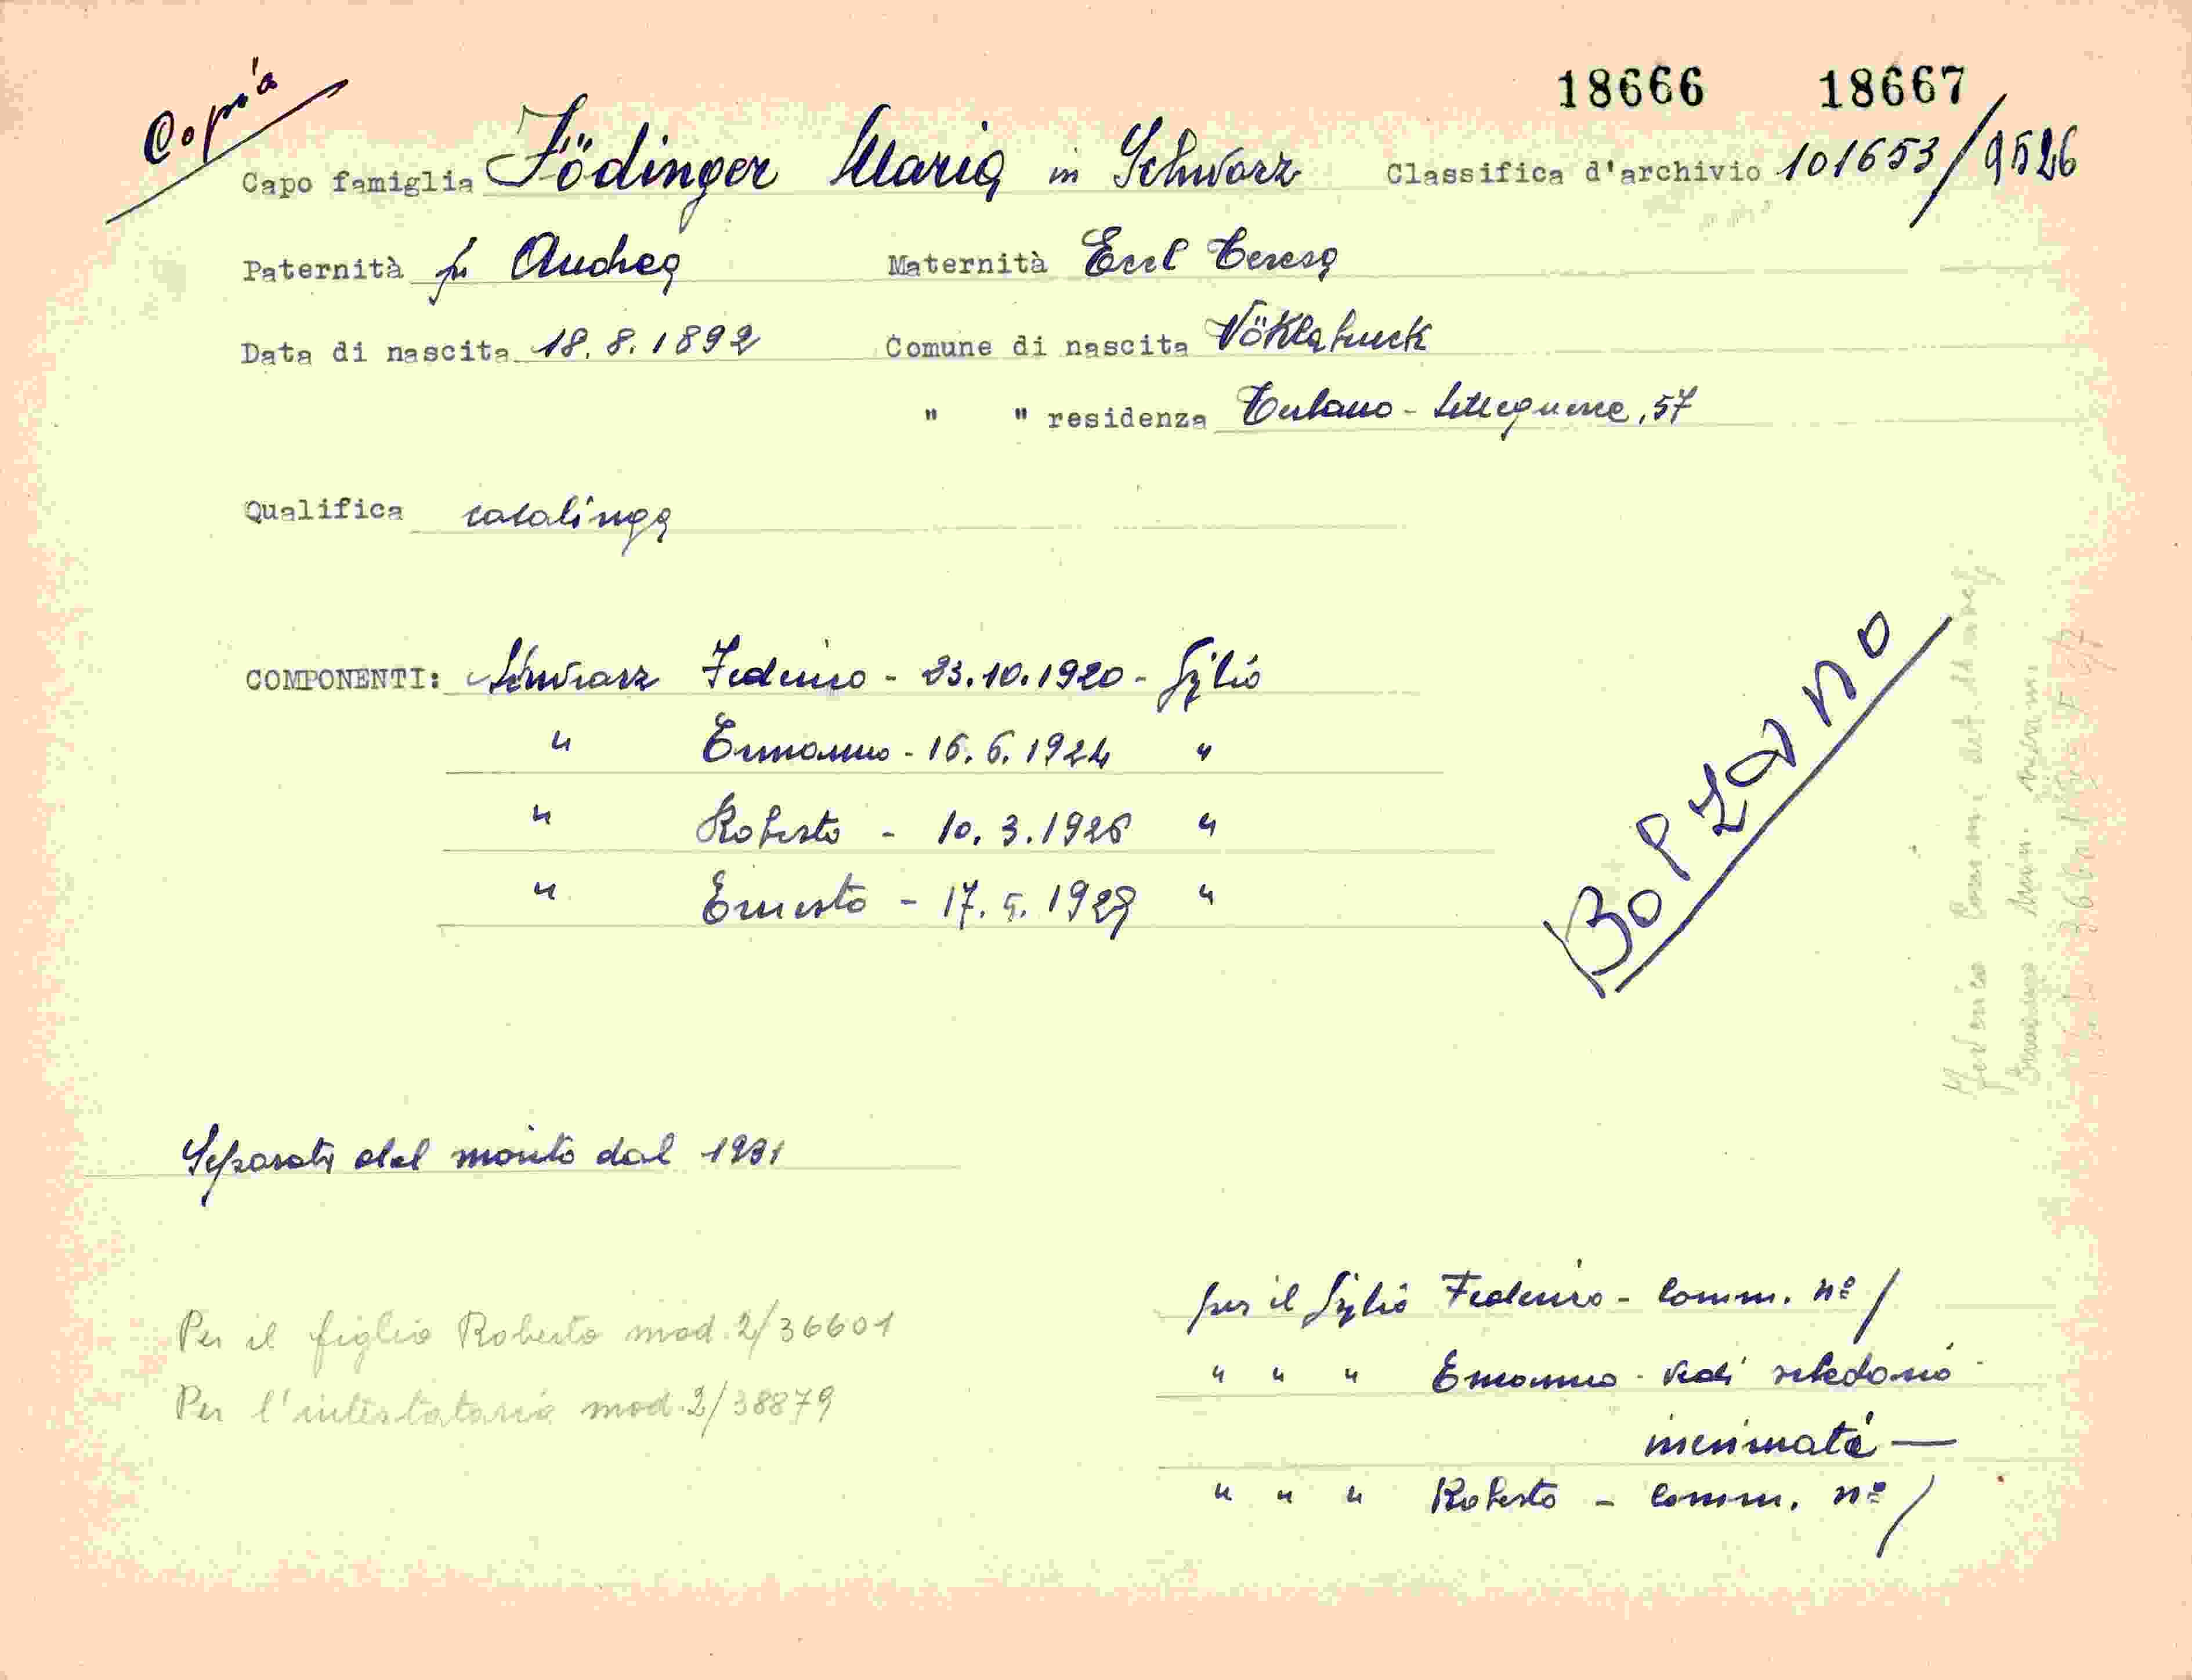 Copia
18666 18667
Capo famiglia Födinger Maria in Schwarz Classifica d'archivio 101653/9526
Paternità fu Andrea Maternità Teresa
Data di nascita 18.8.1892 Comune di nascita Vöklabruck
" " residenza Terlano - Settequerce, 57
Qualifica casalinga
COMPONENTI: Schwarz Federico - 23.10.1920 - figlio
" Ermanno - 16.6.1924 "
" Roberto - 10.3.1926 "
" Ernesto - 17.5.1929 "
BOLZANO
Separata dal marito dal 1931
per il figlio Federico - Comm. nº /
" " " Ermanno - vedi schedario
" " " Roberto - Comm. nº /
Per il figlio Roberto mod. 2/36601
Per l'intestataria mod. 2/38879
Federico